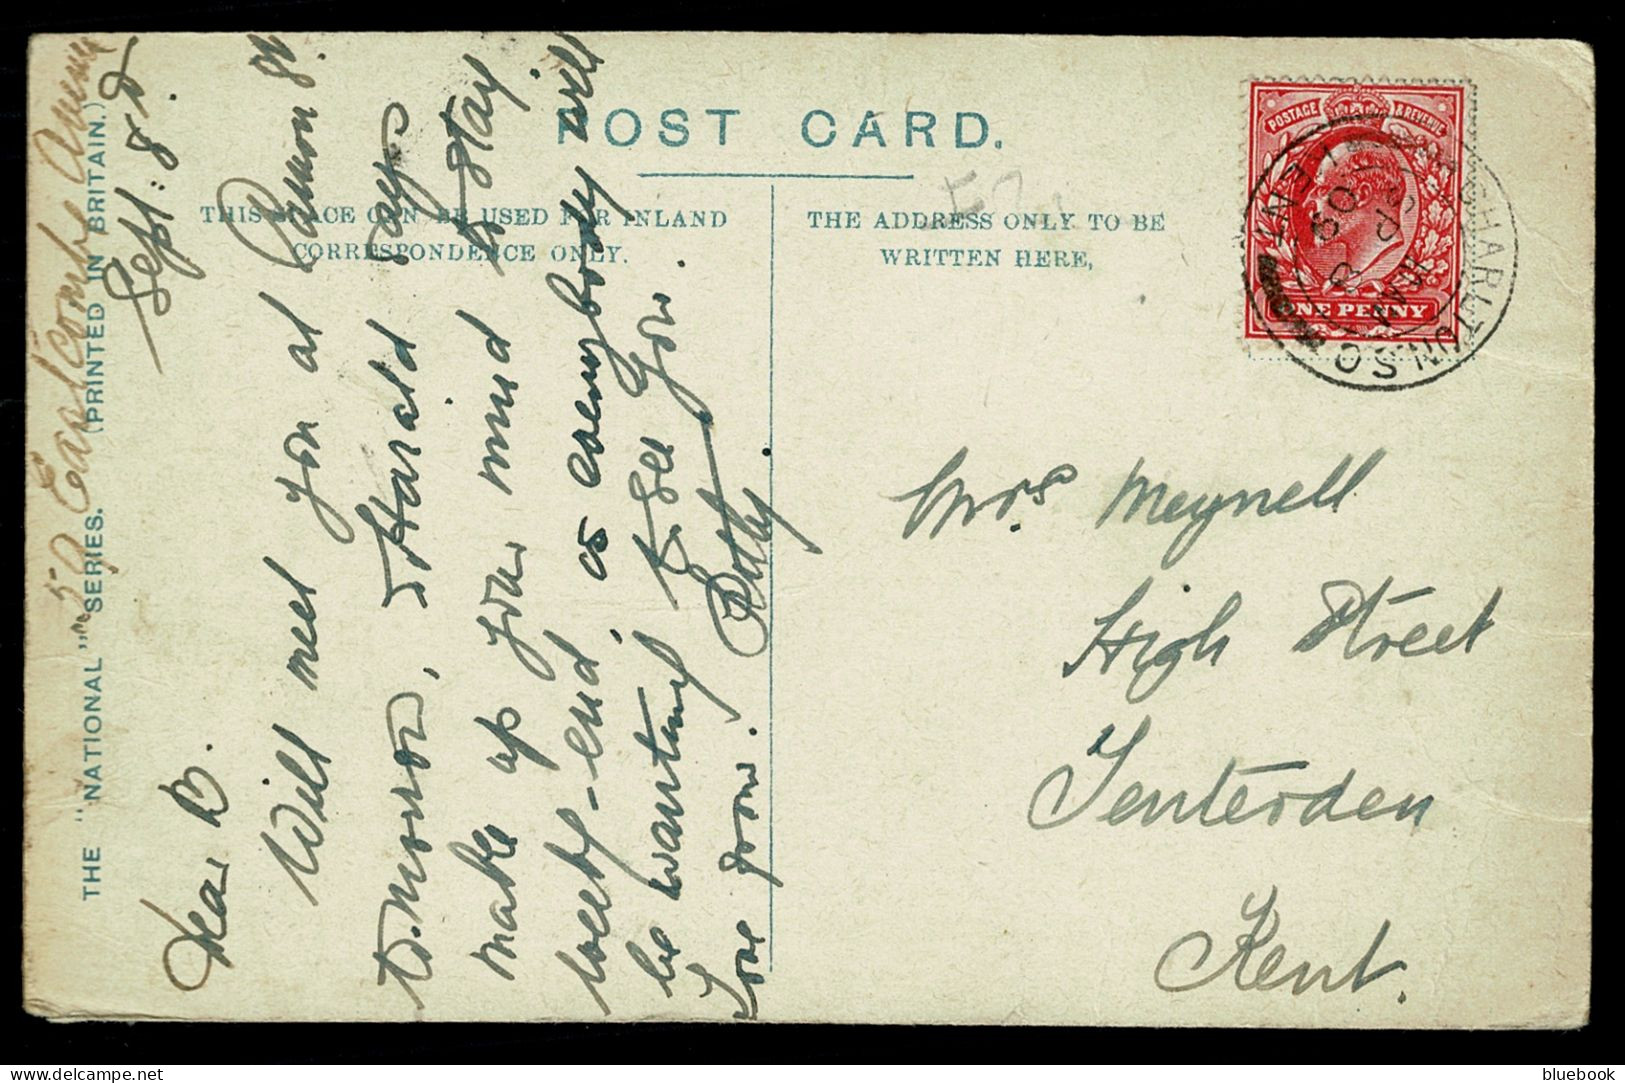 POST CARD.
THIS SPACE CAN BE USED FOR INLAND
CORRESPONDENCE ONLY.
THE ADDRESS ONLY TO BE
WRITTEN HERE,
THE "NATIONAL" SERIES. (PRINTED IN BRITAIN.)
POSTAGE & REVENUE
ONE PENNY
Sept: 8th
Dear B.
Will meet you at Cannon St.
tomorrow, Harald says
make up your mind to stay
week-end, as everybody will
be wanting to see you.
Love from
Mrs. Meynell
High Street
Tenterden
Kent.
bluebook